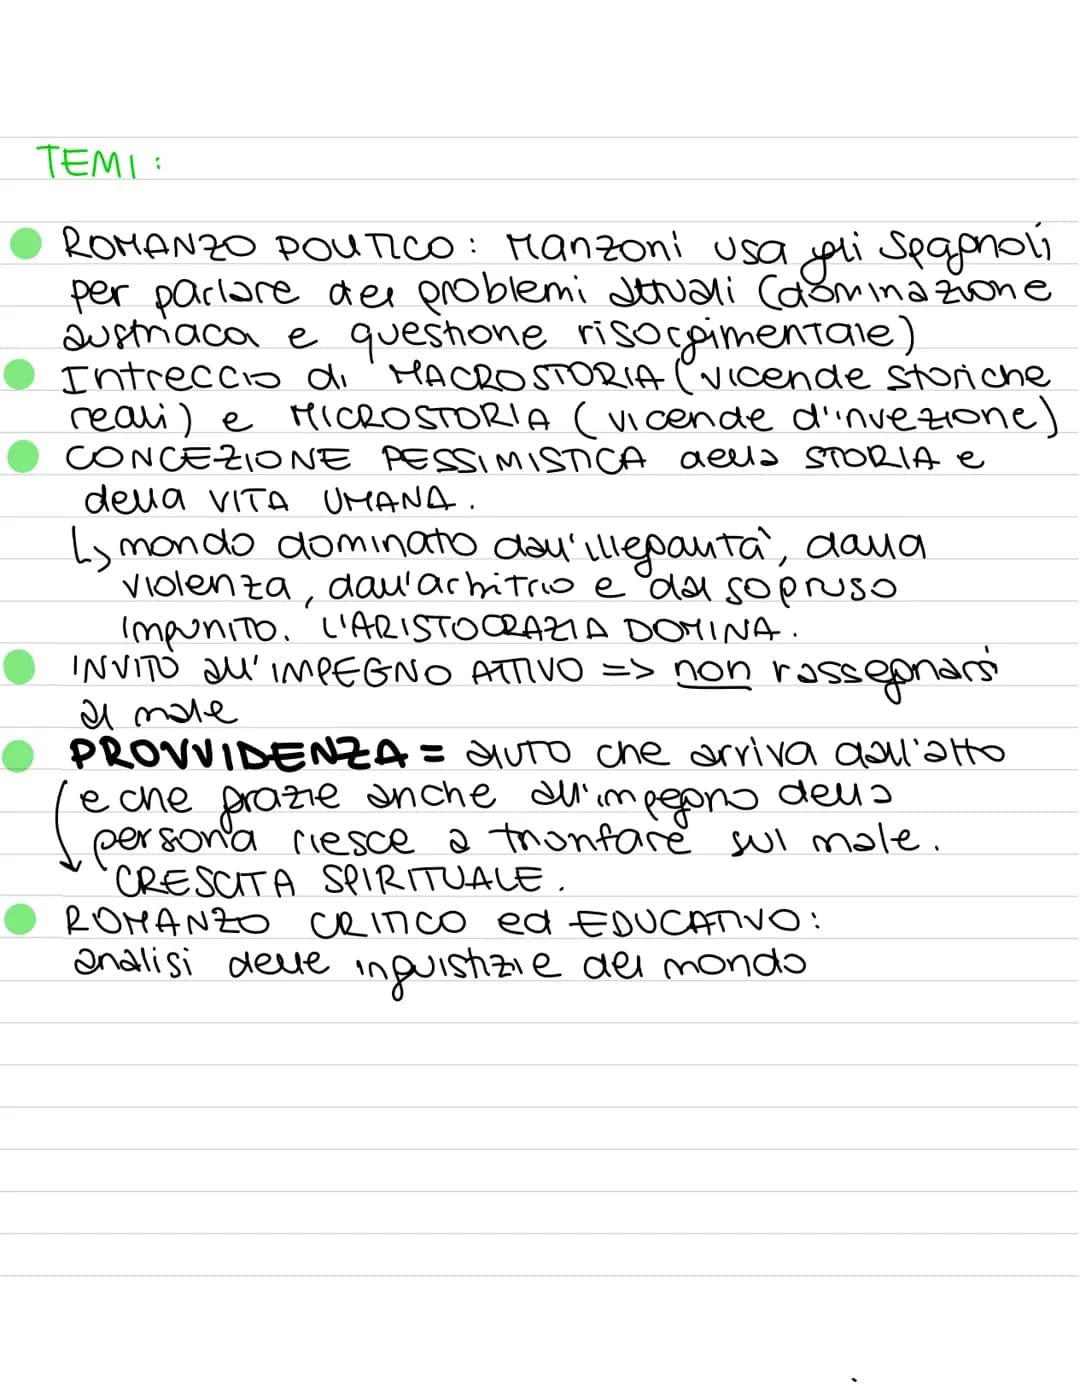 TEMI:
ROMANZO POLITICO: Manzoni usa gli Spagnoli
per parlare dei problemi attuali (dominazione
austriaca e questione risorgimentale)
Intreccio di MACROSTORIA (vicende storiche
reali) e MICROSTORIA (vicende d'invezione)
CONCEZIONE PESSIMISTICA della STORIA e
della VITA UMANA.
↳ mondo dominato dall'illegalità, dalla
violenza, dall'arbitrio e dal sopruso
impunito. L'ARISTOCRAZIA DOMINA.
INVITO all'IMPEGNO ATTIVO => non rassegnarsi
al male
PROVVIDENZA = aiuto che arriva dall'alto
e che grazie anche all'impegno della
persona riesce a trionfare sul male.
CRESCITA SPIRITUALE.
ROMANZO CRITICO ed EDUCATIVO:
analisi delle inguistizie del mondo